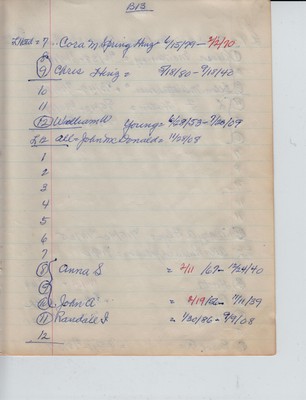 B13
7 .. Cora M Spring Haig 6/15/79 - 3/2/70
8
9 Chris Haig = 9/18/80 - 9/18/40
10
11
12 William W Young = 6/29/53 - 9/20/09
L12 all = John McDonald = 11/28/09
1
2
3
4
5
6
7
8 Anna S = 2/11/69 - 12/24/40
9
10 John A = 2/19/62 - 7/11/39
11 Randall I = 1/20/86 - 9/9/68
12